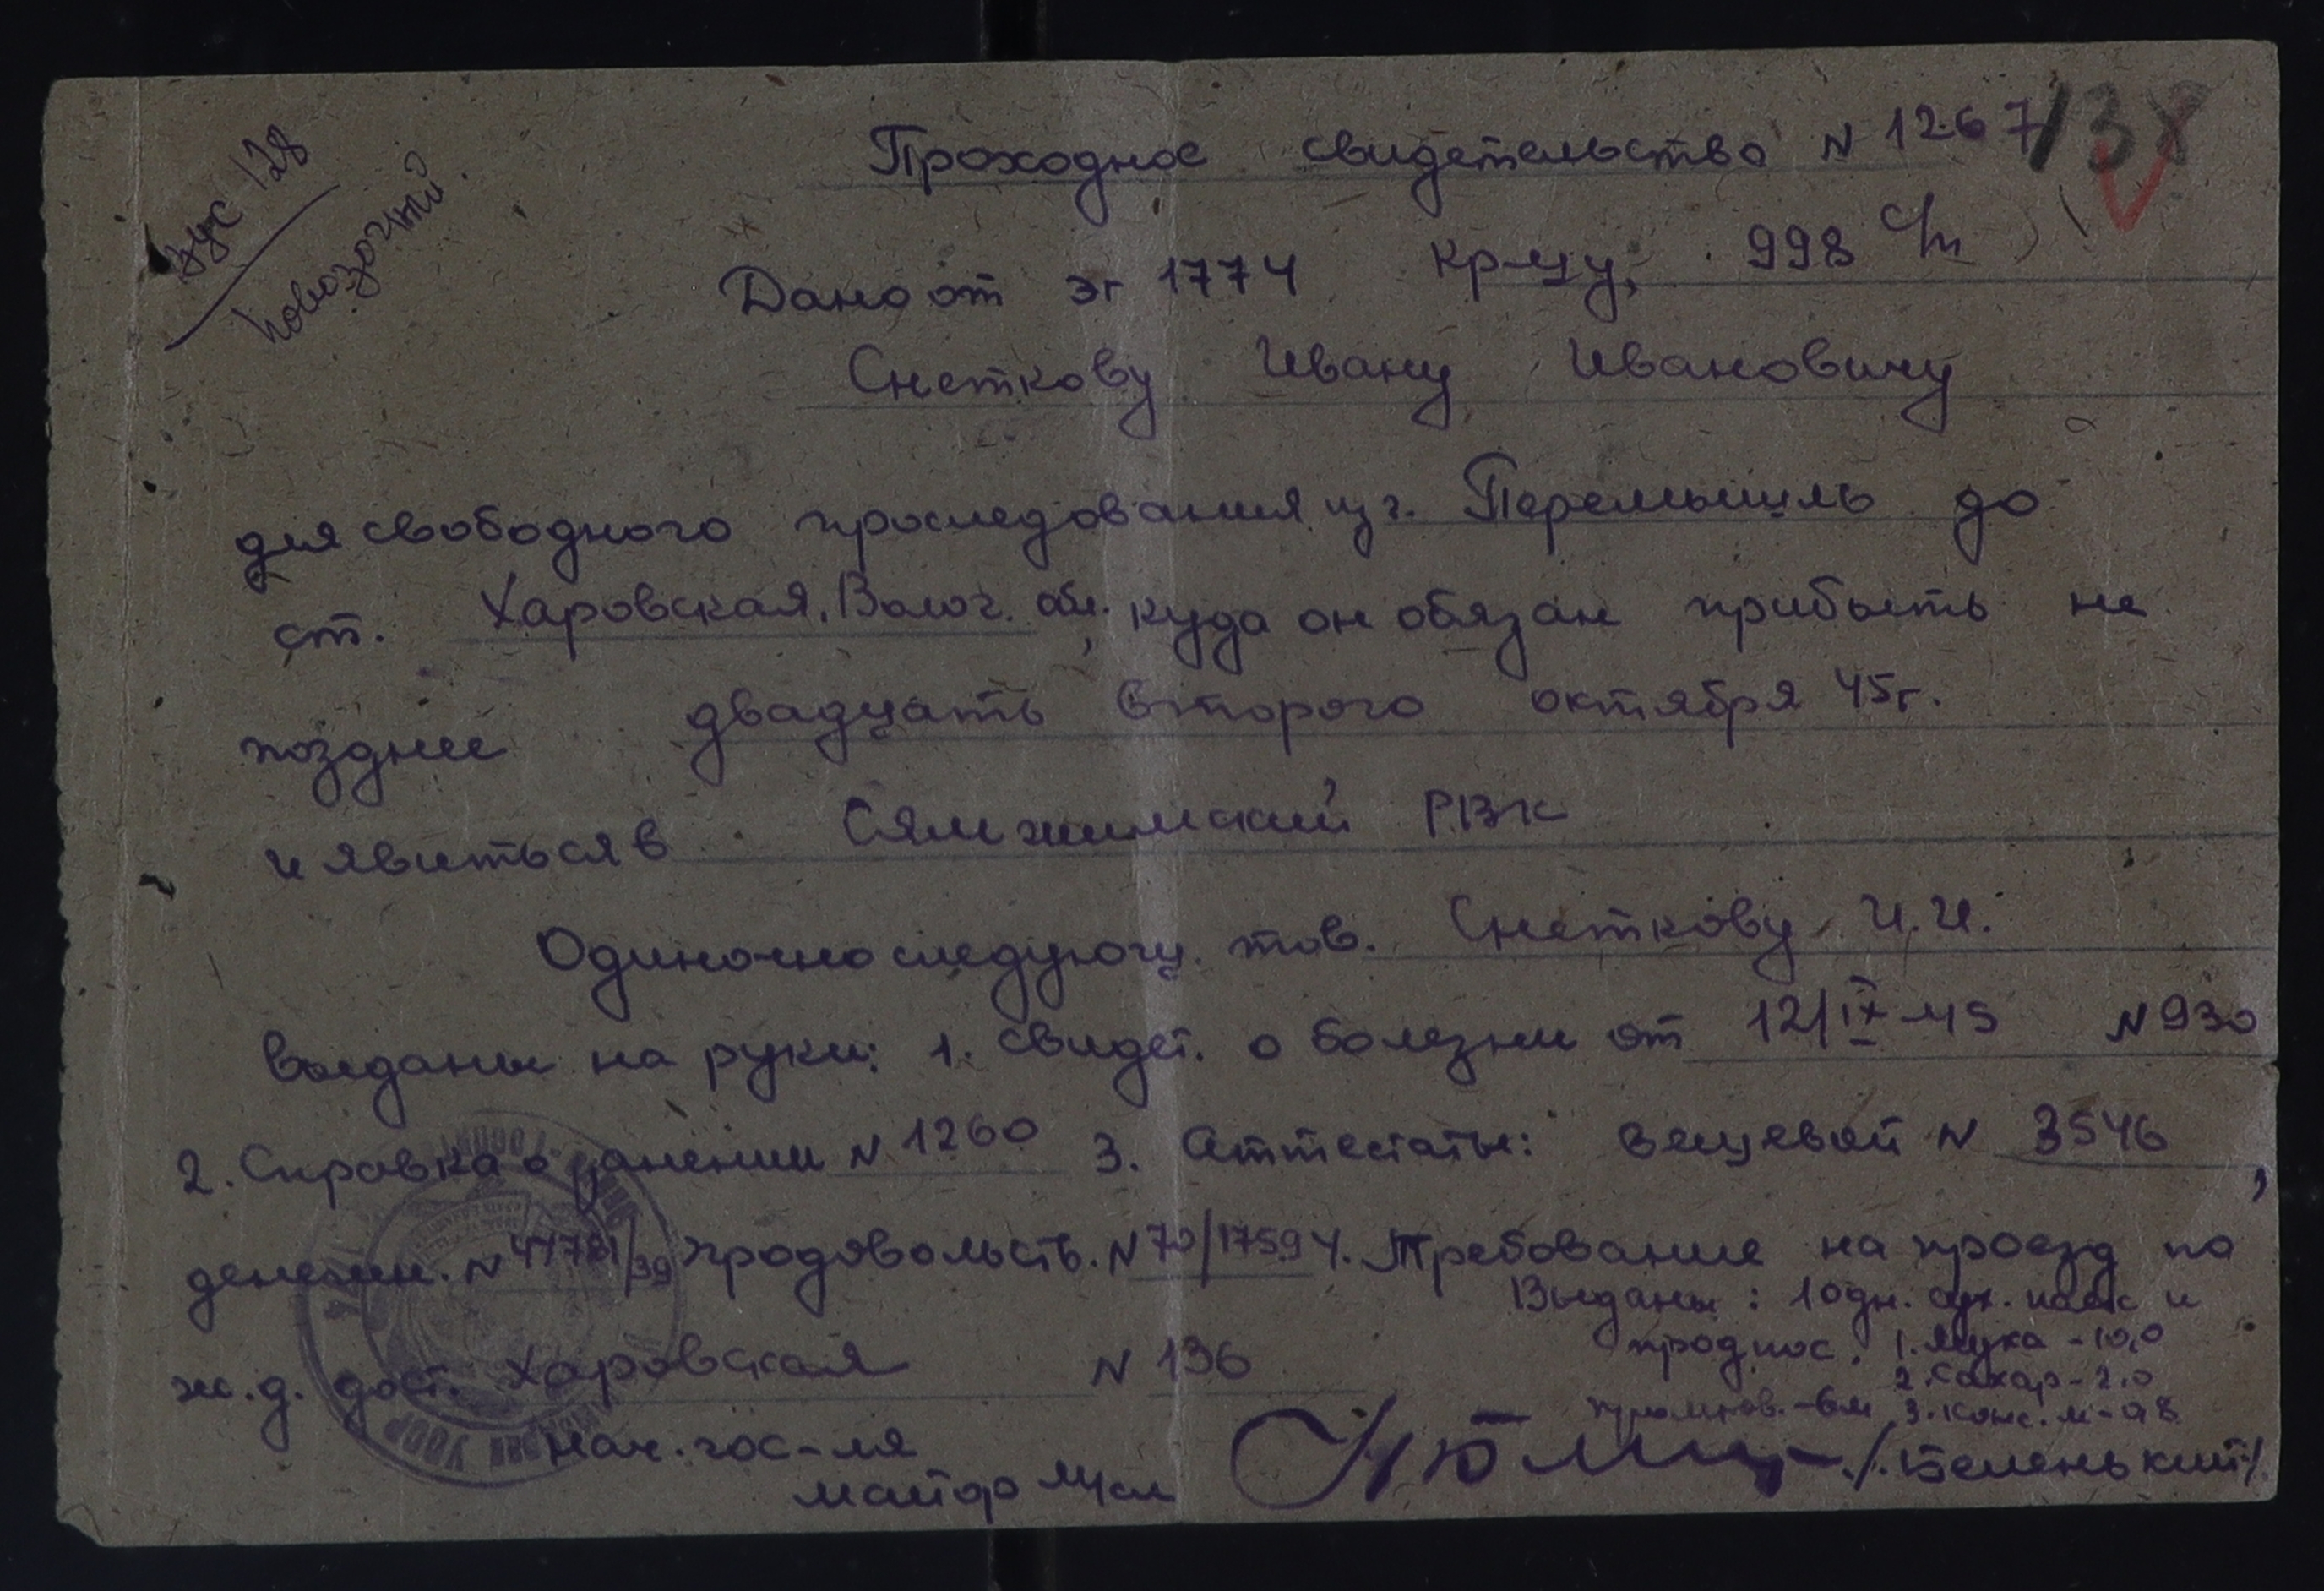 вус 128
повозочный.
Проходное свидетельство N 1267
138
Дано от эг 1774 кр-цу, 998 с/п
Снеткову Ивану Ивановичу
для свободного проследования из г. Перемышль до
ст. Харовская, Волог. обл. куда он обязан прибыть не
позднее двадцать второго октября 45г.
и явиться в Сямжимский РВК
Одиночно следующ. тов. Снеткову И.И.
выданы на руки: 1. свидет. о болезни от 12/IX-45 N 930
2. Справка о ранении N 1260 3. Аттестаты: вещевой N 3546,
денежн. N 44781/39 продовольств. N 70/1759 4. Требование на проезд по
ж.д. до ст. Харовская N 136
Выданы: 10 дн. сух. паек и
продпос. 1. Мука - 10,0
2. Сахар - 2.0
промтов. - 6м 3. Конс. м-
нач. гос-ля
майор м/сл /Беленький/